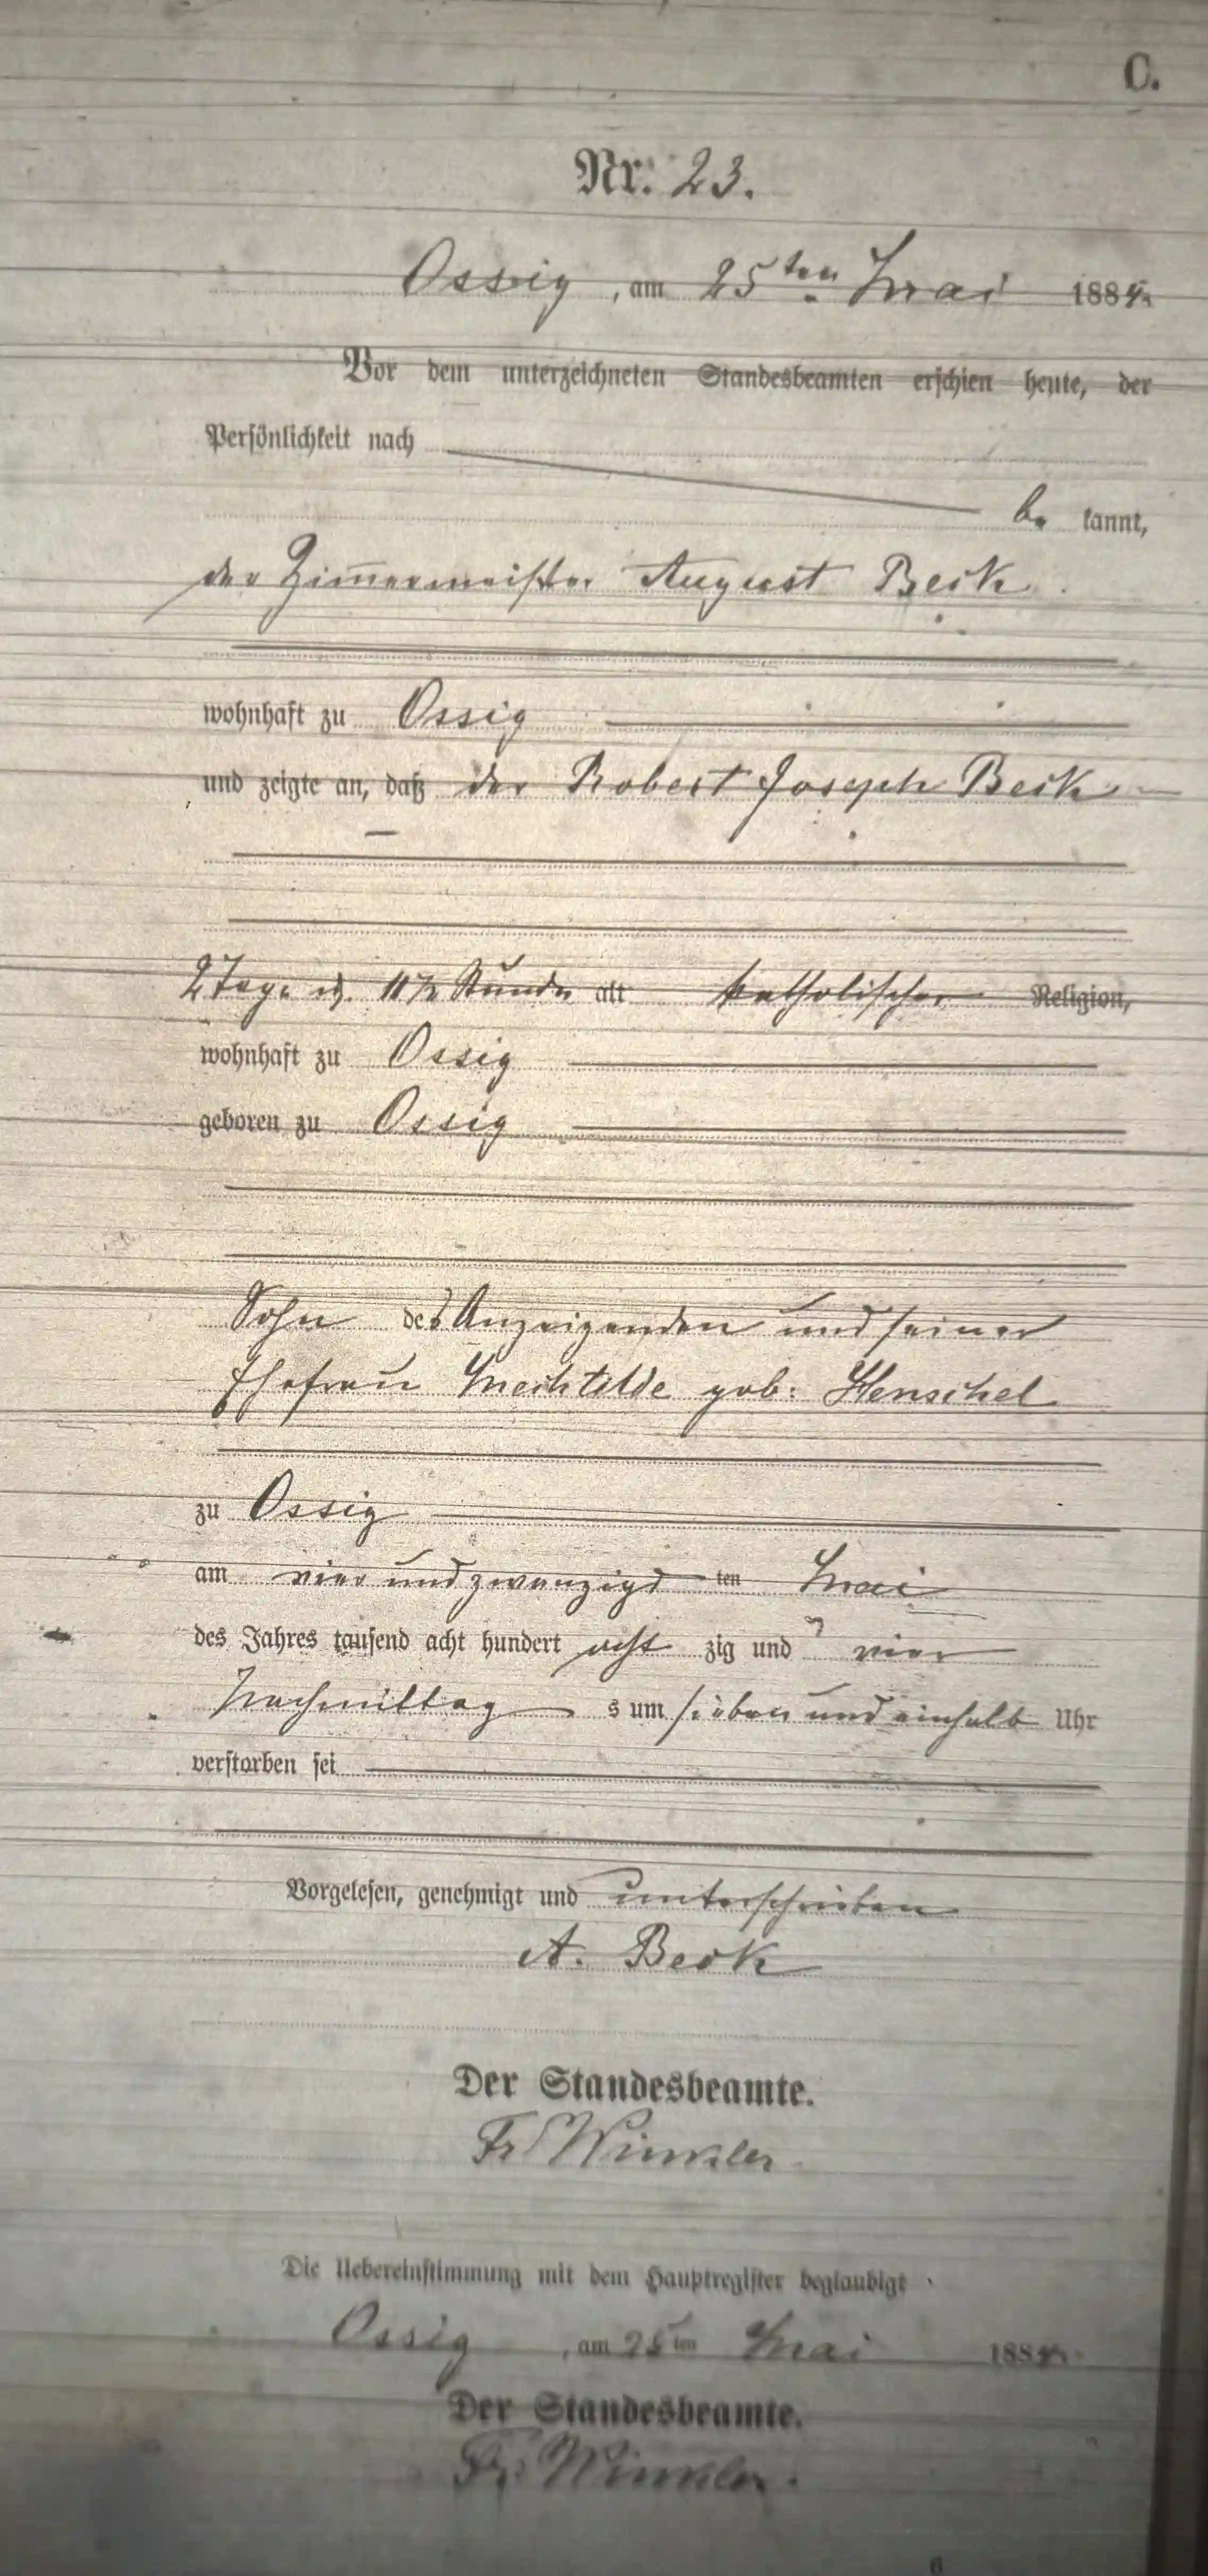 C.
Nr. 23.
Ossig, am 25ten Mai 1884
Vor dem unterzeichneten Standesbeamten erschien heute, der
Persönlichkeit nach
be kannt,
der Zimmermeister August Beck
wohnhaft zu Ossig
und zeigte an, daß der Robert Joseph Beck
2 Tage u. 11½ Stunden alt katholischer Religion,
wohnhaft zu Ossig
geboren zu Ossig
Sohn des Anzeigenden und seiner
Ehefrau Mechtilde geb: Henschel
zu Ossig
am vier und zwanzigsten Mai
des Jahres tausend acht hundert acht zig und vier
Nachmittag s um sieben und einhalb Uhr
verstorben sei
Vorgelesen, genehmigt und unterschrieben
A. Beck
Der Standesbeamte.
Fr Winkler
Die Uebereinstimmung mit dem Hauptregister beglaubigt
Ossig, am 25ten Mai 1884
Der Standesbeamte.
Fr. Winkler.